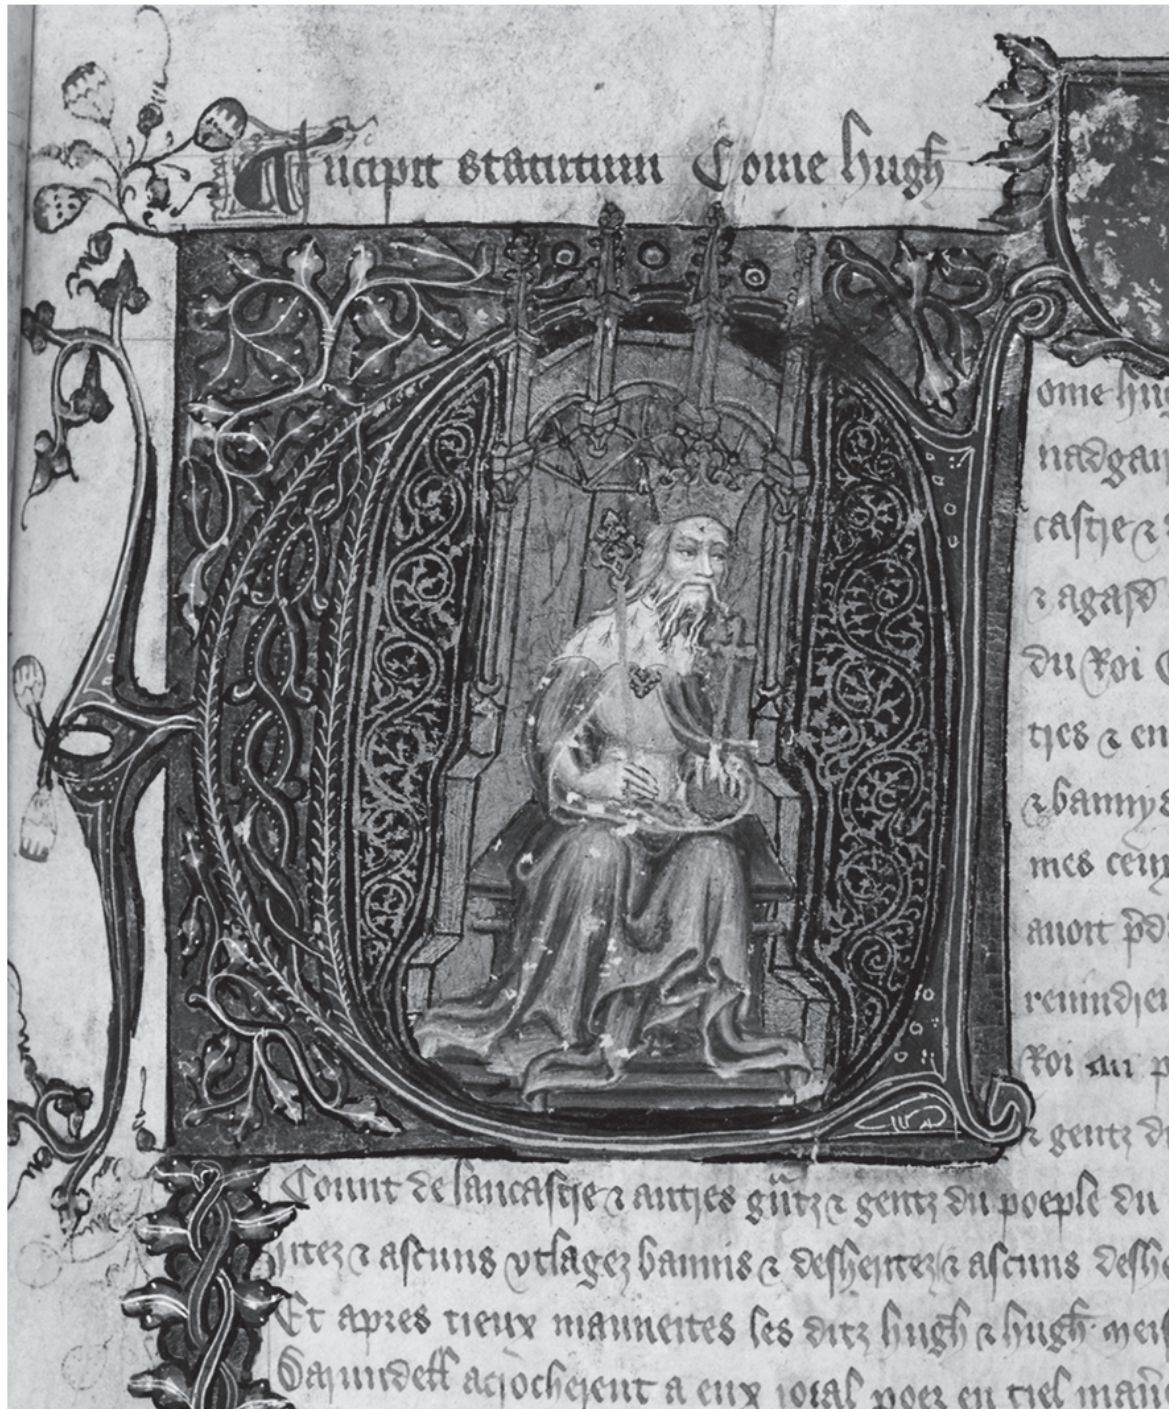 Incipit statutum Come hugh
ome hug
nadgair
castre &
& agard
du Roi
tres & en
& bannys
mes ceux
auoit pd
remndren
Roi au p
& gentz d
Count de lancastre & autres gntz & gentz du poeple du
utez & ascuns vtlagez bannis & desheritez & ascuns deshe
Et apres tieux les ditz hugh & hugh
Darundell acrocherent a eux roial poer en tiel man